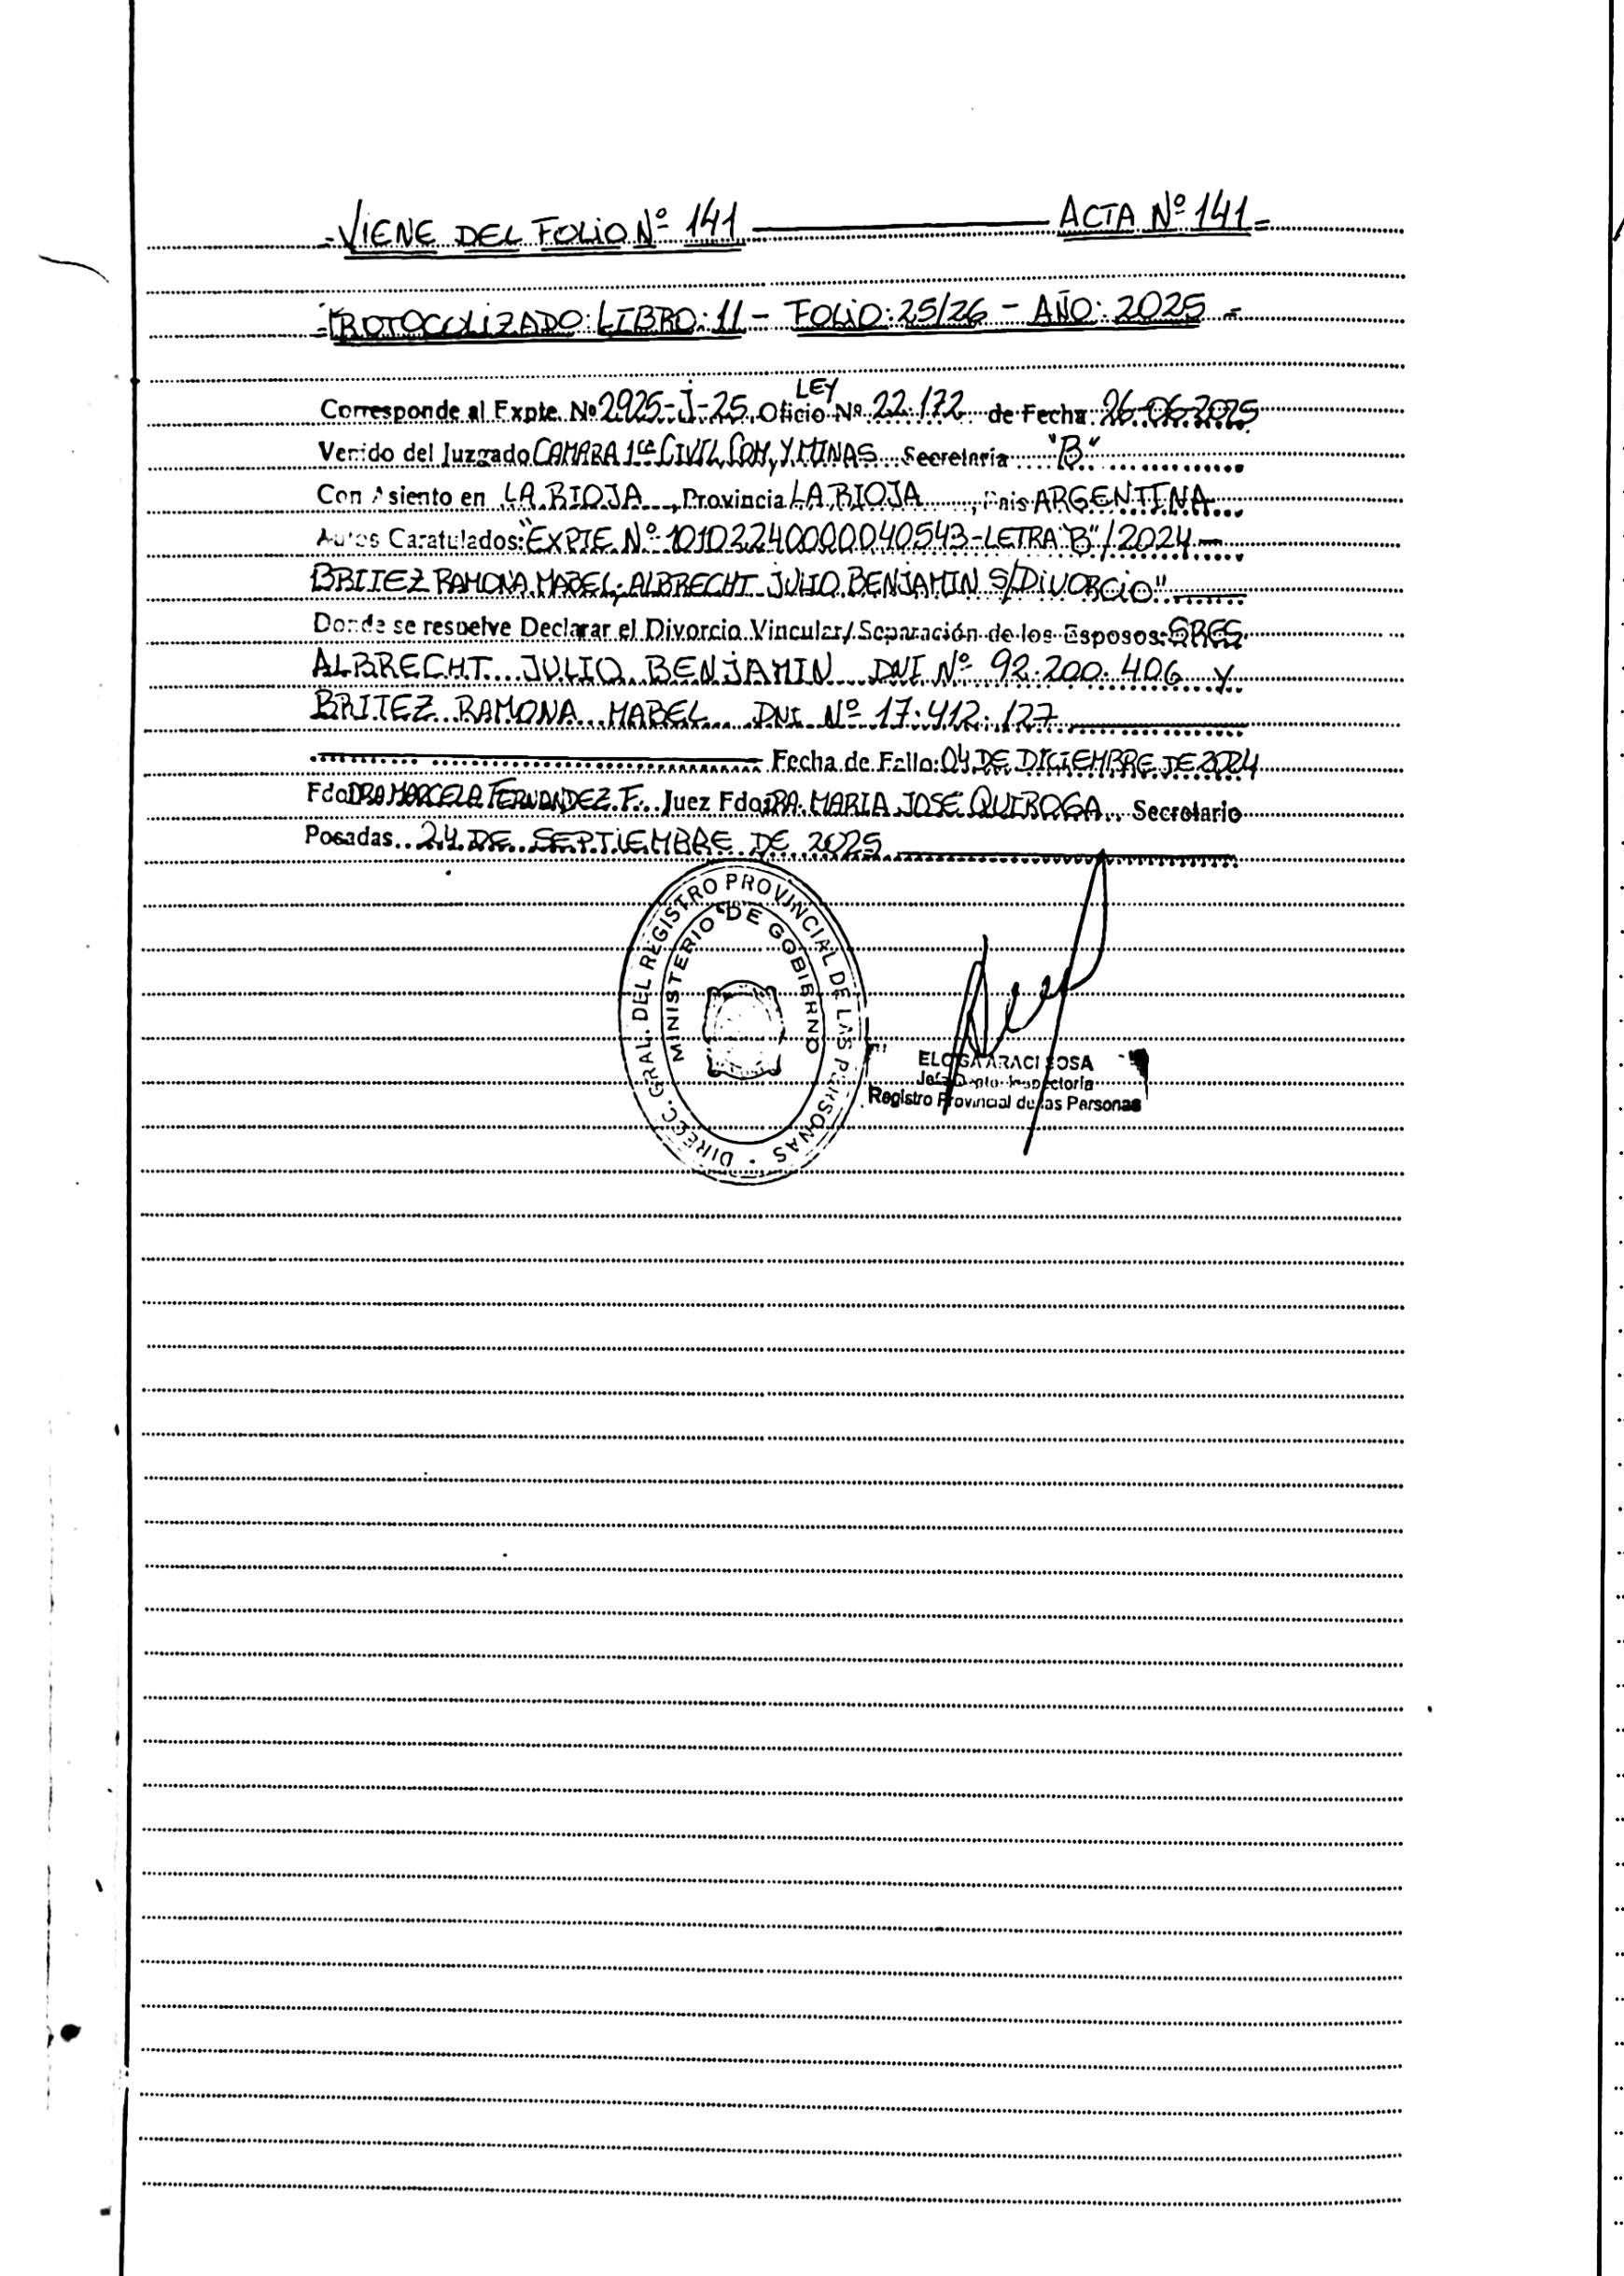 -VIENE DEL FOLIO Nº 141 ACTA Nº 141-
-PROTOCOLIZADO: LIBRO: 11 - FOLIO: 25/26 - AÑO: 2025 -
LEY
Corresponde al Expte. Nº 2925-J-25, Oficio Nº 22.172 de Fecha 26-06-2025
Venido del Juzgado CAMARA 1ra CIVIL, COM, Y MINAS Secretaria "B"
Con Asiento en LA RIOJA, Provincia LA RIOJA, Pais ARGENTINA
Autos Caratulados: "EXPTE Nº 10102240000040543-LETRA "B"/2024-
BRITEZ RAMONA MABEL; ALBRECHT JULIO BENJAMIN S/DIVORCIO"
Donde se resuelve Declarar el Divorcio Vincular/Separación de los Esposos: SRES
ALBRECHT JULIO BENJAMIN DNI Nº 92.200.406 Y
BRITEZ RAMONA MABEL DNI Nº 17.412.127
Fecha de Fallo: 04 DE DICIEMBRE DE 2024
Fdo: DRA MARCELA FERNANDEZ F. Juez Fdo: DRA. MARIA JOSE QUIROGA Secretario
Posadas 24 DE SEPTIEMBRE DE 2025
DIRECC. GRAL. DEL REGISTRO PROVINCIAL DE LAS PERSONAS
MINISTERIO DE GOBIERNO
ARACI SOSA
Jefa Dpto. Inspectoria
Registro Provincial de las Personas